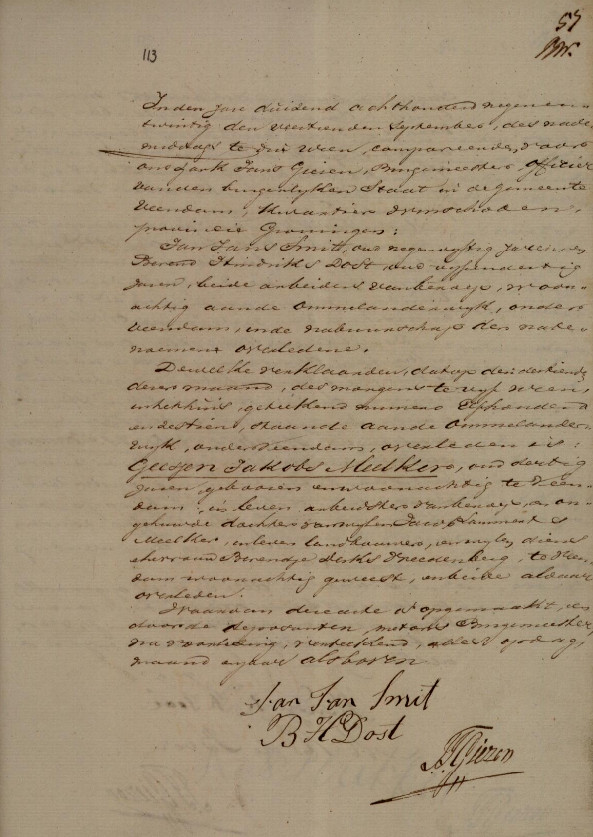 57
113
In den Jare duizend achthonderd negenen-
twintig den veertienden September, des nade
middags te drie uren, compareerden, voor
ons Jark Jans Giezen, Burgemeester Officier
van den burgerlyken Staat in de gemeente
Veendam, Kwartier Winschoten,
provincie Groningen:
Jan Jans Smitt, oud negenvyftig Jaren en
Berend Hindriks Dost, oud vyfendertig
Jaren, beide arbeiders van beroep, woon-
achtig aan de Ommelanderwyk, onder
Veendam, in de nabuurschap der nade-
noemen overledene.
Dewelke verklaarden, dat op den dertiende
dezer maand, des morgens te vyf uren,
in het huis, getekend numero Elfhonderd
en dertien, staande aan de Ommelander-
wyk, onder Veendam, overleden is:
Geessien Jakobs Mulker, oud dertig
Jaren, geboren en woonachtig te Veen-
dam, in leven arbeidster van beroep, on-
gehuwde dochter van wylen Jacob Lammerts
Meelker, in leven landbouwer, en wylen diens
ehevrouw Berendje Derks Vreedenberg, te Veen-
dam woonachtig geweest, en beide aldaar
overleden.
Waarvan deze acte is opgemaakt, en
door de deposanten, met ons Burgemeester,
na voorlezing, vertekend, alles op dag,
maand en jaar als boven
Jan Jan Smit
B H Dost
Giezen